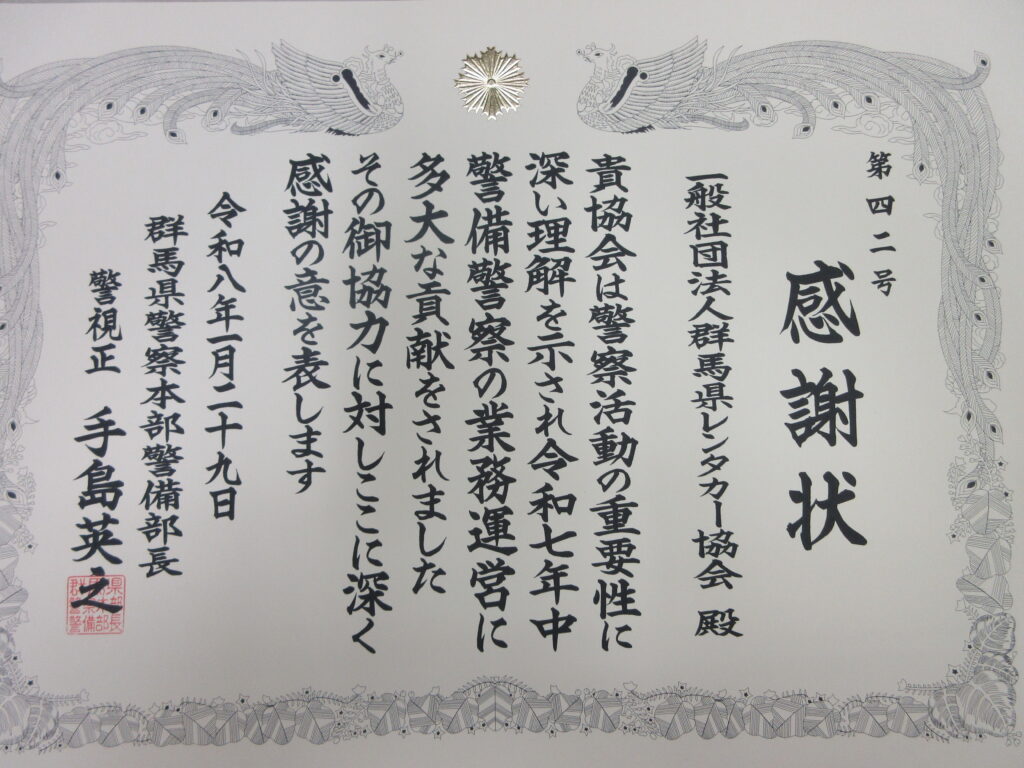 第四二号
感謝状
一般社団法人群馬県レンタカー協会 殿
貴協会は警察活動の重要性に
深い理解を示され令和七年中
警備警察の業務運営に
多大な貢献をされました
その御協力に対しここに深く
感謝の意を表します
令和八年一月二十九日
群馬県警察本部警備部長
警視正 手島英之